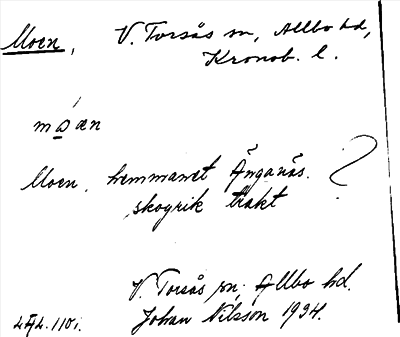 Moen, V. Torsås sn, Allbo hd,
Kronob. l.
Moen. hemmanet Änganäs. ?
skogrik trakt
V. Torsås sn, Allbo hd.
Johan Nilsson 1924.